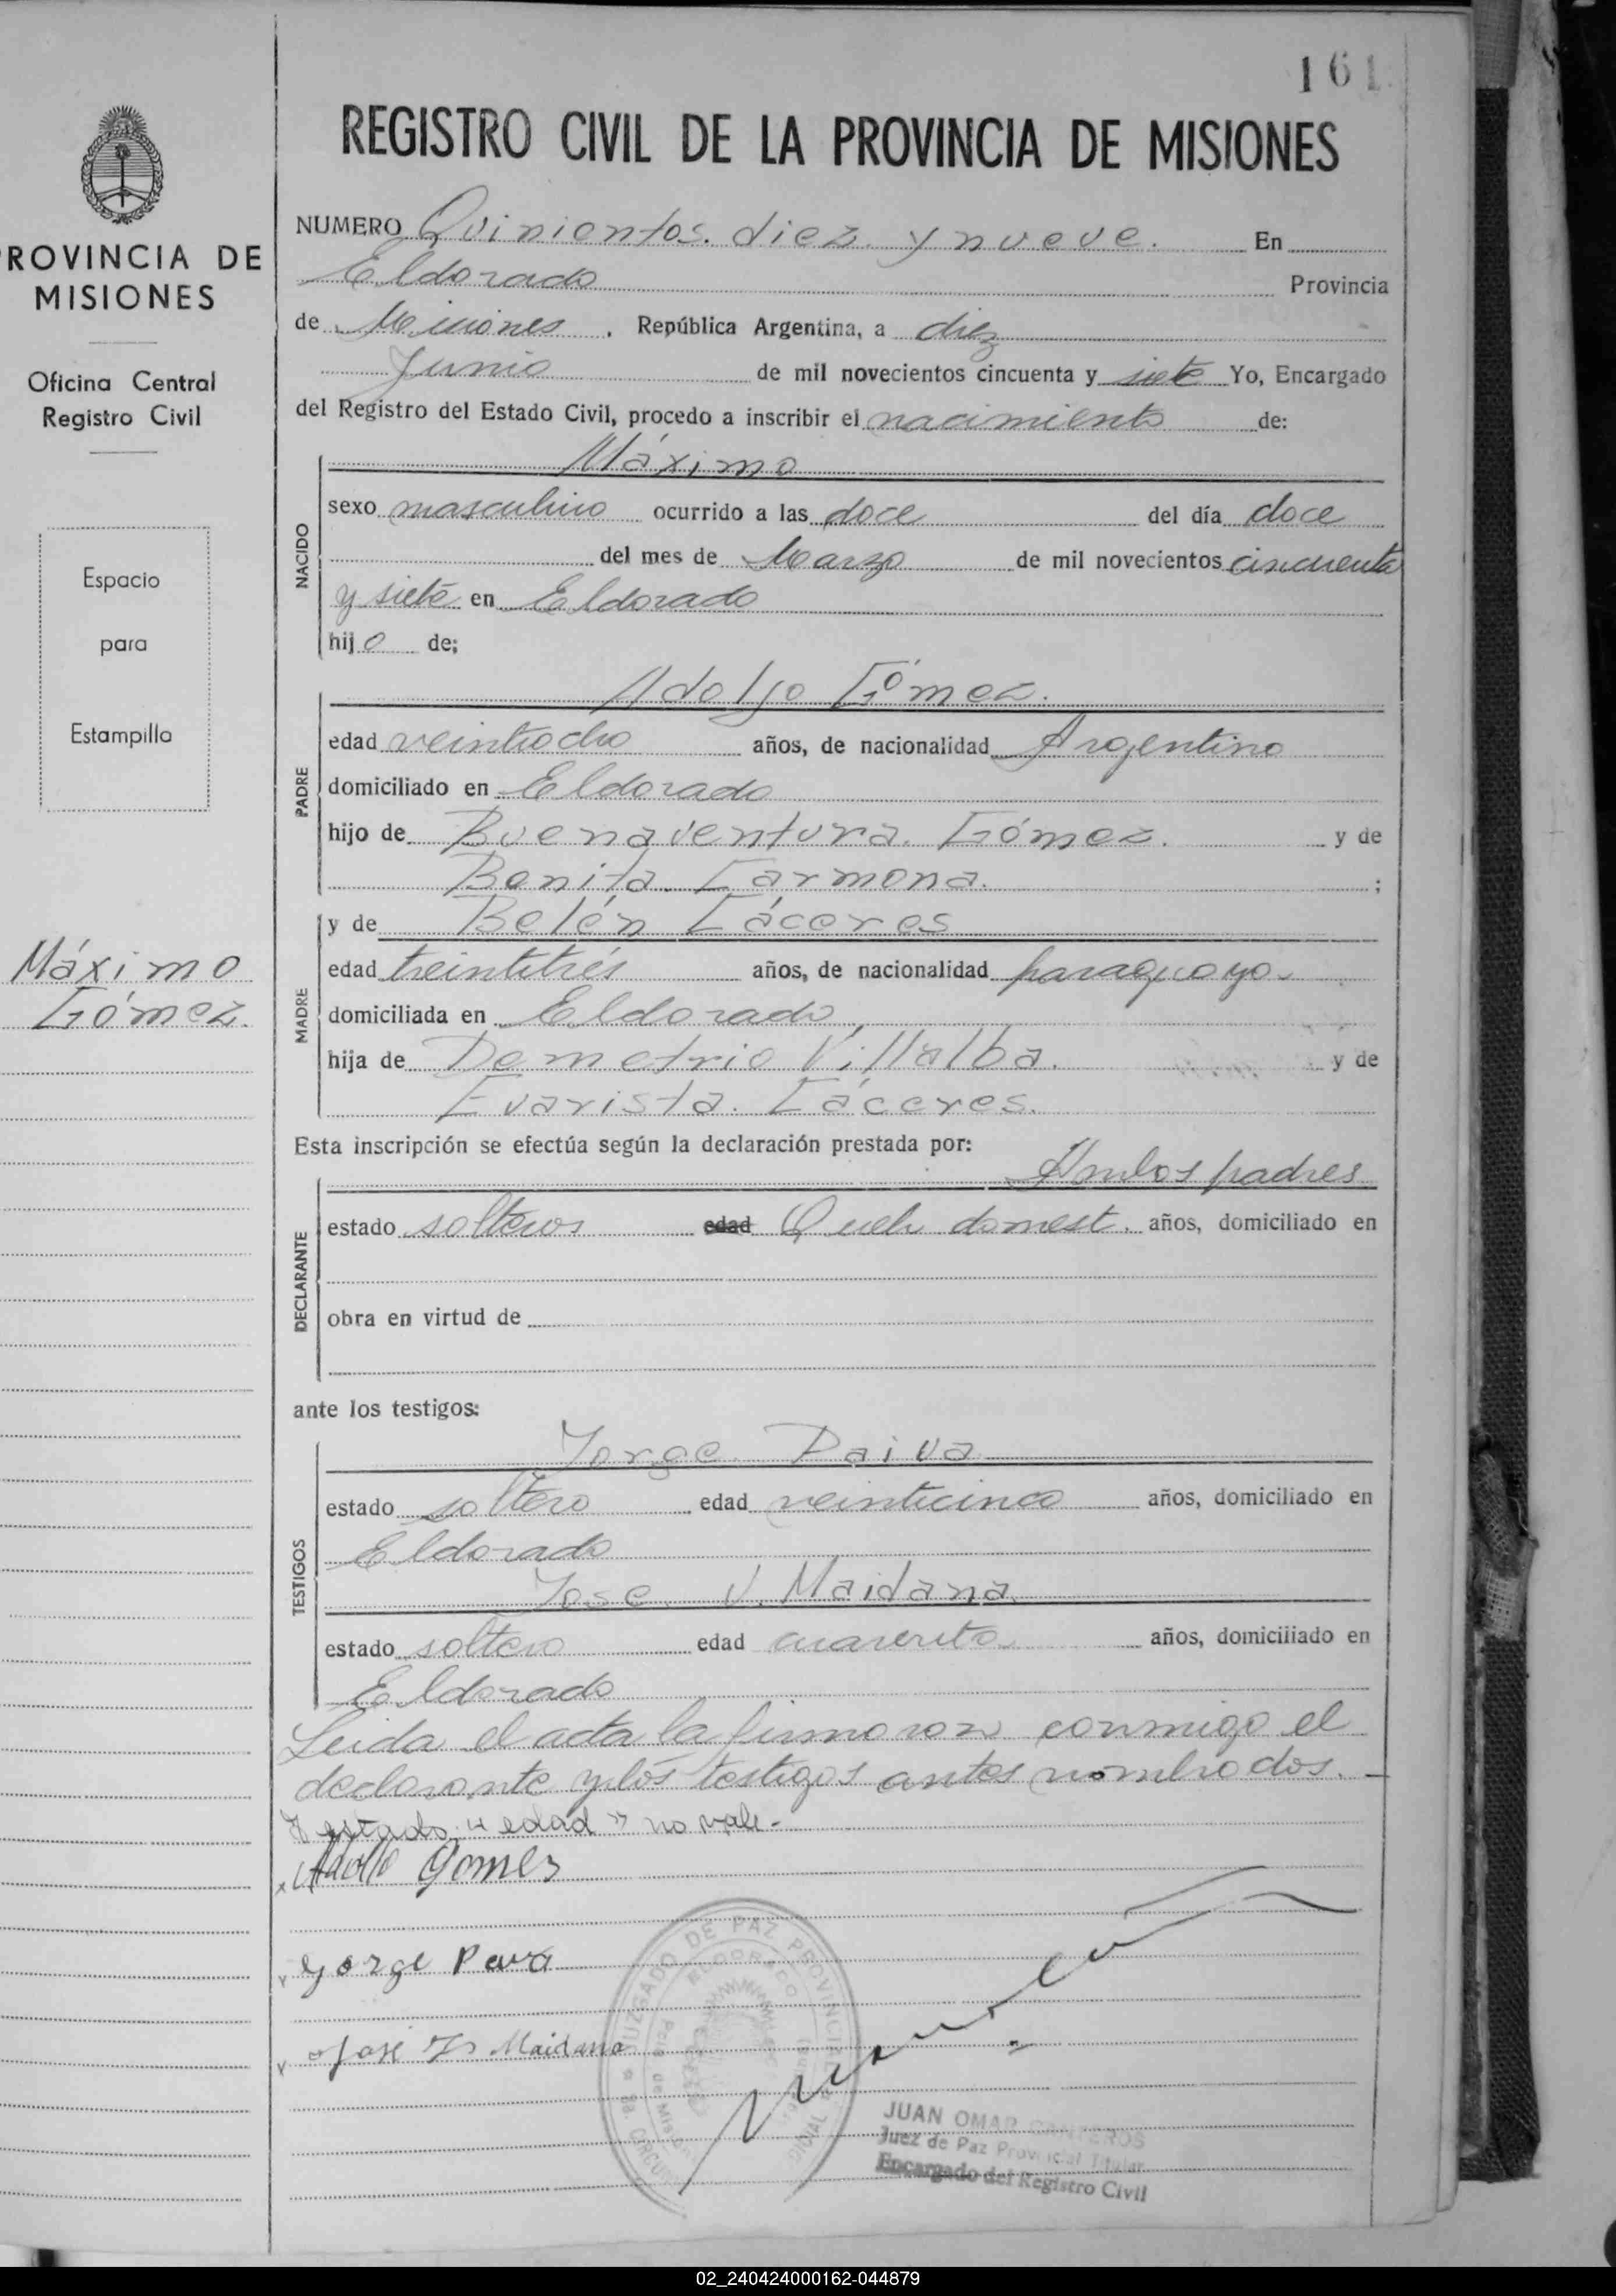 161
REGISTRO CIVIL DE LA PROVINCIA DE MISIONES
PROVINCIA DE
MISIONES
Oficina Central
Registro Civil
Espacio
para
Estampilla
Máximo
Gómez.
NUMERO Quinientos. diez. y nueve. En
Eldorado Provincia
de Misiones , República Argentina, a diez
Junio de mil novecientos cincuenta y siete Yo, Encargado
del Registro del Estado Civil, procedo a inscribir el nacimiento de:
NACIDO
Máximo
sexo masculino ocurrido a las doce del día doce
del mes de Marzo de mil novecientos cincuenta
y siete en Eldorado
hijo de;
PADRE
Adolfo Gómez.
edad veintiocho años, de nacionalidad Argentino
domiciliado en Eldorado
hijo de Buenaventura. Gómez. y de
Benita. Carmona. ;
MADRE
y de Belén Cáceres
edad treintitrés años, de nacionalidad paraguaya
domiciliada en Eldorado
hija de Demetrio Villalba. y de
Evarista. Cáceres.
Esta inscripción se efectúa según la declaración prestada por:
DECLARANTE
Ambos padres
estado solteros edad domest. años, domiciliado en
obra en virtud de
ante los testigos:
TESTIGOS
Jorge Paiva
estado soltero edad veinticinco años, domiciliado en
Eldorado
Jose V. Maidana
estado soltero edad cuarenta años, domiciliado en
Eldorado
Leida el acta la firmaron conmigo el
declarante y los testigos antes nombrados. —
estado "edad" no vale-
x Adolfo Gomez
Jorge
Jose Maidana
JUZGADO DE PAZ PROVINCIAL
ELDORADO
JUAN OMAR
Juez de Paz Provincial Titular
Encargado del Registro Civil
02_240424000162-044879